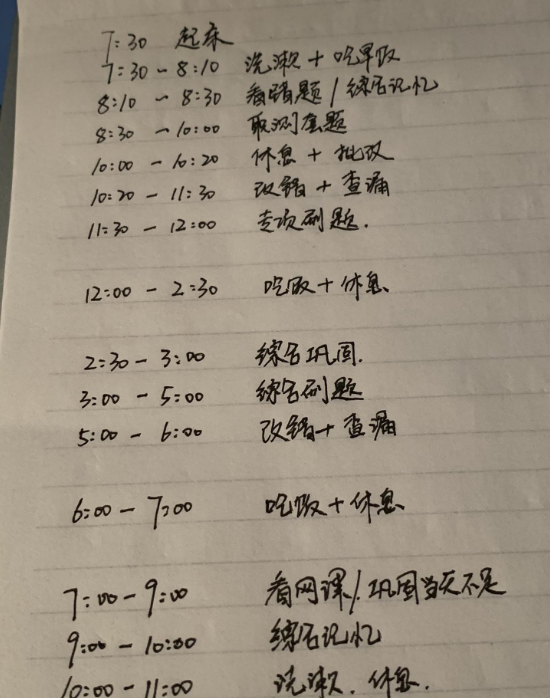 7:30 起床
7:30 - 8:10 洗漱 + 吃早饭
8:10 - 8:30 看错题 / 综名记忆
8:30 - 10:00 职测套题
10:00 - 10:20 休息 + 批改
10:20 - 11:30 改错 + 查漏
11:30 - 12:00 专项刷题.
12:00 - 2:30 吃饭 + 休息
2:30 - 3:00 综名巩固.
3:00 - 5:00 综名刷题
5:00 - 6:00 改错 + 查漏
6:00 - 7:00 吃饭 + 休息
7:00 - 9:00 看网课 / 巩固当天不足
9:00 - 10:00 综名记忆
10:00 - 11:00 洗漱. 休息.